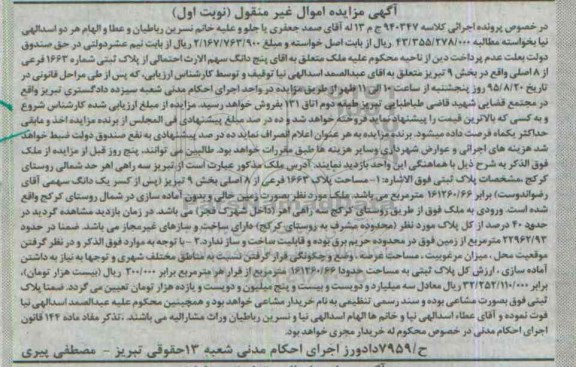 آگهی مزایده اموال غیر منقول (نوبت اول)
در خصوص پرونده اجرائی کلاسه ۹۴۰۳۴۷ ج م ۱۳ له آقای صمد جعفری یا جلو و علیه خانم نسرین رباطیان و عطا و الهام هر دو اسدالهی
نیا بخواسته مطالبه ۴۳/۳۵۵/۲۷۸/۰۰۰ ریال از بابت اصل خواسته و مبلغ ۲/۱۶۷/۷۶۳/۹۰۰ ریال از بابت نیم عشردولتی در حق صندوق
دولت بعلت عدم پرداخت دین از ناحیه محکوم علیه ملک متعلق به آقای پنج دانگ سهم الارث احتمالی از پلاک ثبتی شماره ۱۶۶۳ فرعی
از ۸ اصلی واقع در بخش ۹ تبریز متعلق به آقای عبدالصمد اسدالهی نیا توقیف و توسط کارشناس ارزیابی، که پس از طی مراحل قانونی در
تاریخ ۹۵/۸/۲۰ روز پنجشنبه از ساعت ۱۰ الی ۱۱ ظهر از طریق مزایده در واحد اجرای احکام مدنی شعبه سیزده دادگستری تبریز واقع
در مجتمع قضایی شهید قاضی طباطبایی تبریز طبقه دوم اتاق ۱۳۱ بفروش خواهد رسید. مزایده از مبلغ ارزیابی شده کارشناس شروع
و به کسی که بالاترین قیمت را پیشنهاد نماید فروخته خواهد شد و ده در صد مبلغ پیشنهادی فی المجلس از برنده مزایده اخذ و مابقی
حداکثر یکماه فرصت داده میشود. برنده مزایده به هر عنوان اعلام انصراف نماید ده در صد پیشنهادی به نفع صندوق دولت ضبط خواهد
شد هزینه های اجرائی و عوارض شهرداری وسایر هزینه ها طبق مقررات خواهد بود. طالبین می توانند، پنج روز قبل از مزایده از ملک
فوق الذکر به شرح ذیل با هماهنگی این واحد بازدید نمایند. آدرس ملک مذکور عبارت است از تبریز سه راهی اهر حد شمالی روستای
کرکج ،مشخصات پلاک ثبتی فوق الاشاره: ۱- مساحت پلاک ۱۶۶۳ فرعی از ۸ اصلی بخش ۹ تبریز (پس از کسر یک دانگ سهمی آقای
رضواندوست) برابر ۱۶۱۲۶۰/۶۶ مترمربع می باشد. ملک مورد نظر بصورت زمین خالی وبدون آماده سازی در شمال روستای کرکج واقع
شده است. ورودی به ملک فوق از طریق روستای کرکج سه راهی اهر (داخل شهرک فجر) می باشد. در زمان بازدید مشاهده گردید در
حدود ۴۰ درصد از کل پلاک مورد نظر (محدوده مشرف به روستای کرکج) دارای ساخت و سازهای غیرمجاز می باشد. ضمنا در حدود
۲۲۹۶۲/۹۳ مترمربع از زمین فوق در محدوده حریم برق بوده و قابلیت ساخت و ساز ندارد.۲- با توجه به موارد فوق الذکر و در نظر گرفتن
موقعیت محل ، میزان مرغوبیت ، مساحت عرصه ، وضع و چگونگی قرار گرفتن نسبت به مناطق مختلف شهری و توجها به نیاز به داشتن
آماده سازی ، ارزش کل پلاک ثبتی به مساحت حدودا ۱۶۱۲۶۰/۶۶ مترمربع از قرار هر مترمربع برابر ۲۰۰/۰۰۰ ریال (بیست هزار تومان)،
برابر ۳۲/۲۵۲/۱۱۰/۰۰۰ ریال معادل سه میلیارد و دویست و بیست و پنج میلیون و دویست و یازده هزار تومان تعیین می گردد. ضمنا پلاک
ثبتی فوق بصورت مشاعی بوده و سند رسمی تنظیمی به نام خریدار مشاعی خواهد بود و همچنین محکوم علیه عبدالصمد اسدالهی نیا
فوت نموده و آقای عطاء اسدالهی نیا و خانم ها الهام اسدالهی نیا و نسرین رباطیان وراث مشارالیه می باشند ، تذکر مفاد ماده ۱۴۴ قانون
اجرای احکام مدنی در خصوص محکوم له خریدار مجری خواهد بود.
ح/۷۹۵۹دادورز اجرای احکام مدنی شعبه ۱۳حقوقی تبریز - مصطفی پیری